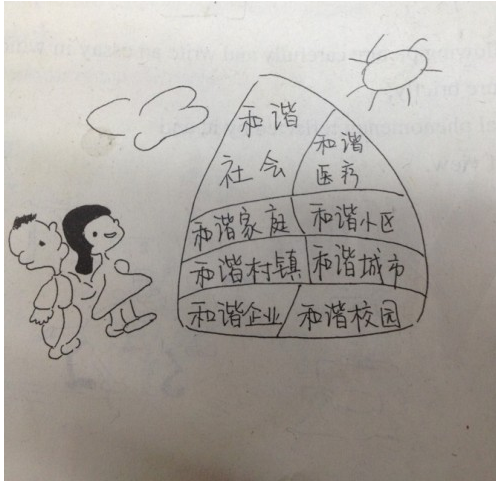 和谐
社会
和谐
医疗
和谐家庭
和谐小区
和谐村镇
和谐城市
和谐企业
和谐校园